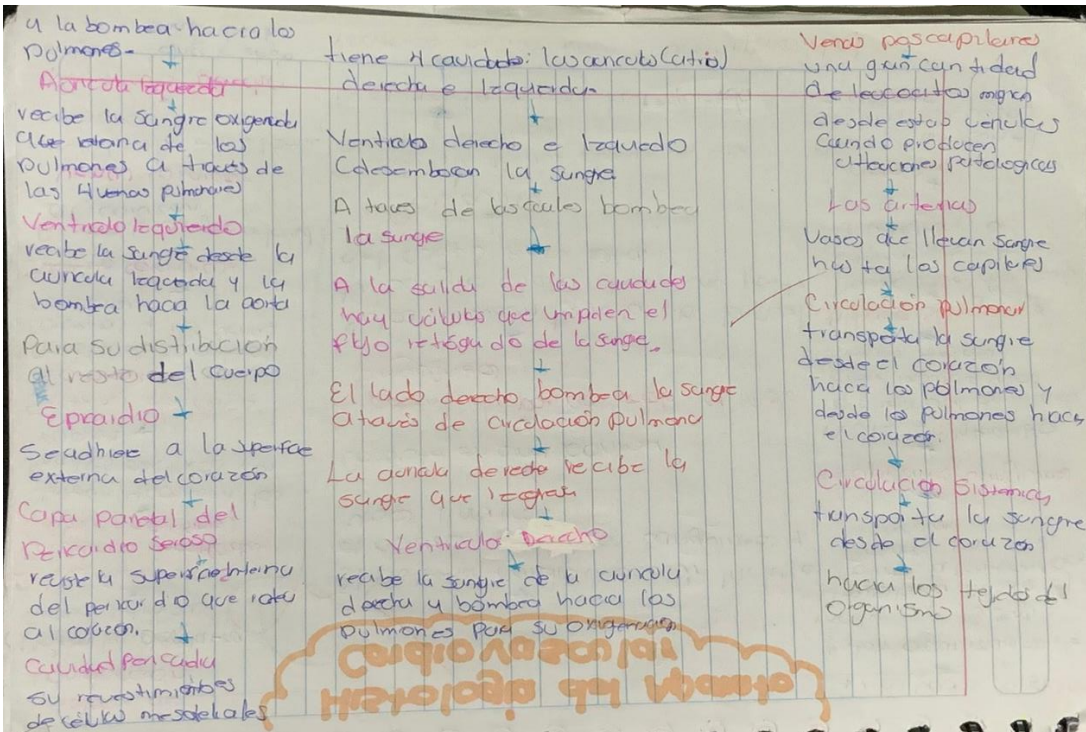 y la bombea hacia los
pulmones-
Auricula Izquierda
recibe la sangre oxigenada
que retorna de los
pulmones a traves de
las 4 venas pulmonares
Ventriculo Izquierdo
recibe la sangre desde la
auricula Izquierda y la
bombea hacia la aorta
para su distribucion
al resto del cuerpo
Epicardio
Se adhiere a la superficie
externa del corazón
Capa parietal del
Pericardio Seroso
reviste la superficie interna
del pericardio que rodea
al corazon.
Cavidad pericardia
su revestimientos
de celulas mesoteliales
tiene 4 cavidades: las auriculas (atrio)
derecha e Izquierda.
Ventriculo derecho e Izquiedo
(desembocan la sangre
A traves de las cuales bombea
la sangre
A la salida de las cavidades
hay válvulas que impiden el
flujo retógrado de la sangre.
El lado derecho bombea la sangre
através de circulación pulmonar
La auricula derecha recibe la
sangre que
Ventriculo Derecho
recibe la sangre de la auricula
derecha y bombea hacia los
pulmones para su oxigenacion
Histologia del sistema
Cardiovascular
Venas poscapilares
una gran cantidad
de leucocitos migran
desde estas vénulas
Cuando producen
alteraciones patologicas
Las arterias
Vasos que llevan sangre
hasta los capilares
Circulación pulmonar
transporta la sangre
desde el corazón
hacia los pulmones y
desde los pulmones hacia
el corazón.
Circulación Sistemica
transporta la sangre
desde el corazon
hacia los tejido del
Organismo